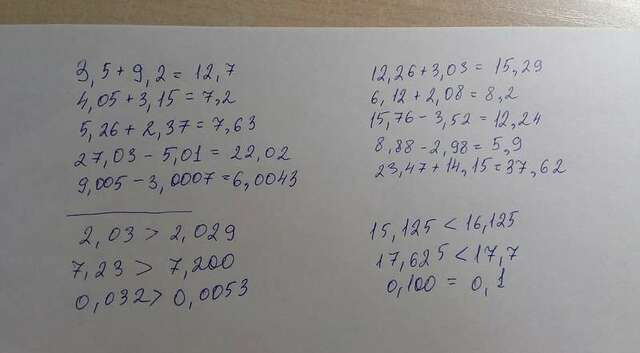 3,5 + 9,2 = 12,7
4,05 + 3,15 = 7,2
5,26 + 2,37 = 7,63
27,03 - 5,01 = 22,02
9,005 - 3,0007 = 6,0043
2,03 > 2,029
7,23 > 7,200
0,032 > 0,0053
12,26 + 3,03 = 15,29
6,12 + 2,08 = 8,2
15,76 - 3,52 = 12,24
8,88 - 2,98 = 5,9
23,47 + 14,15 = 37,62
15,125 < 16,125
17,625 < 17,7
0,100 = 0,1